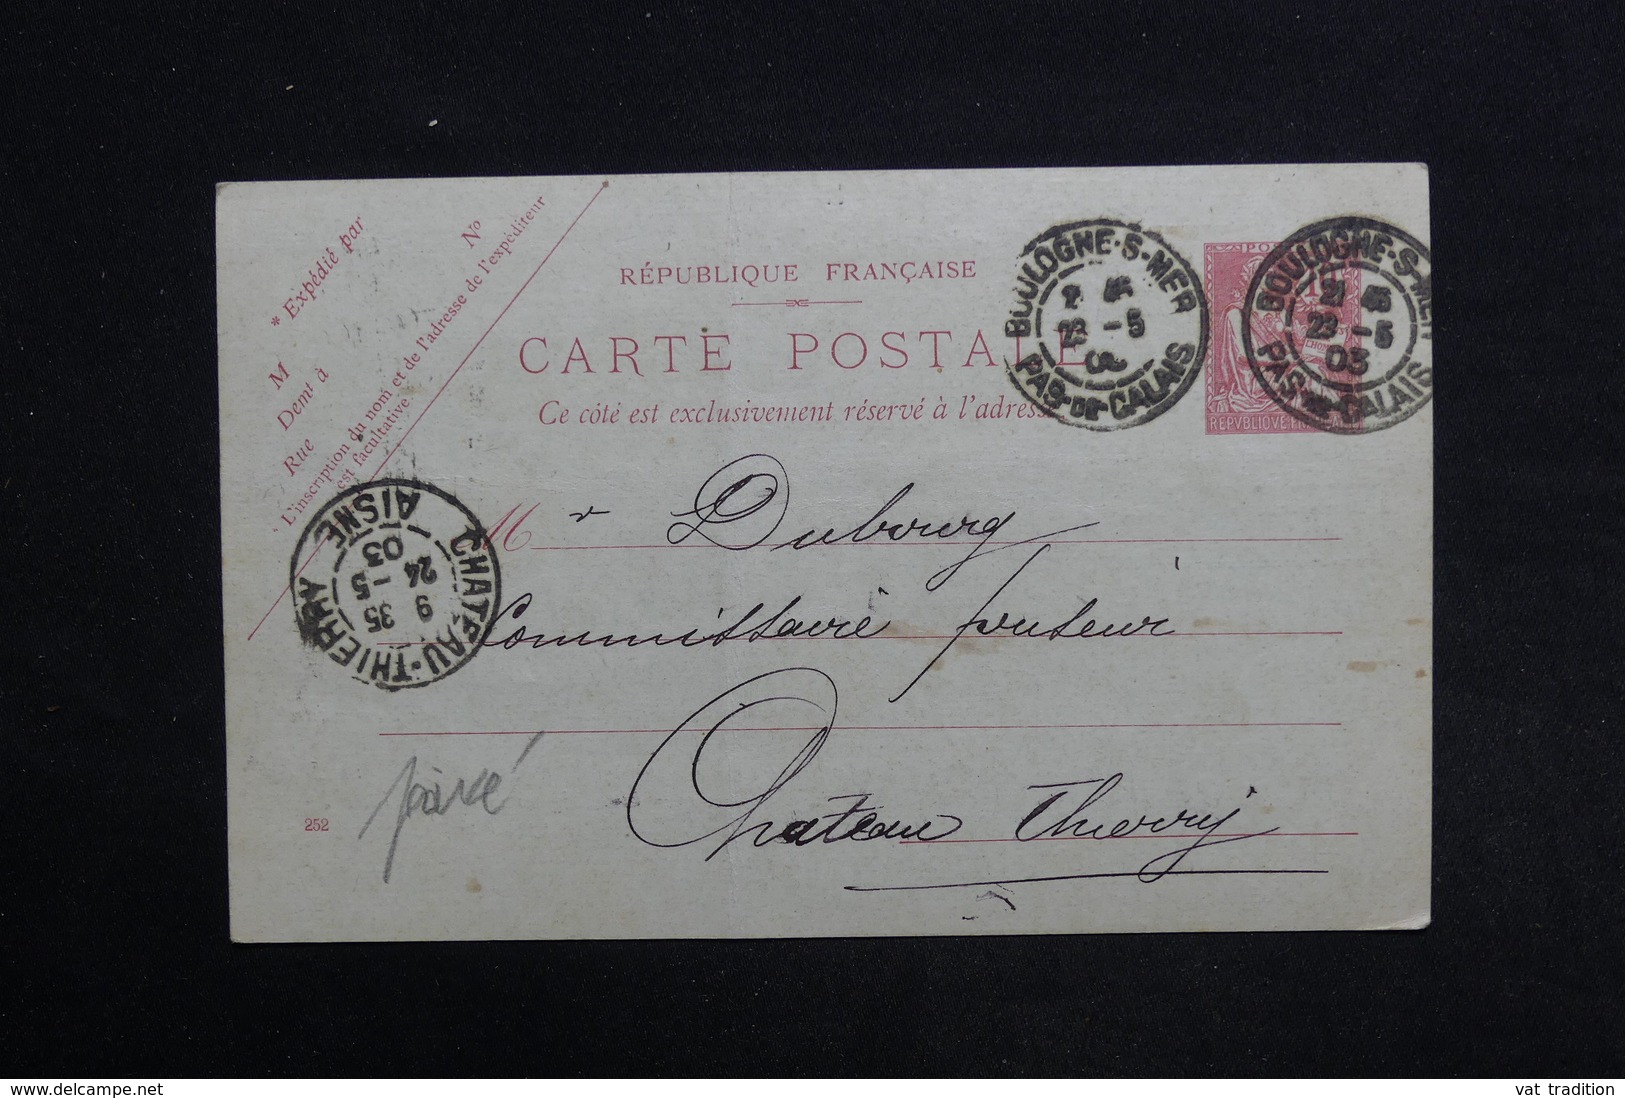 * Expédié par
M
Demt à
Rue
Nº
L'inscription du nom et de l'adresse de l'expéditeur
est facultative.
RÉPUBLIQUE FRANÇAISE
CARTE POSTALE
Ce côté est exclusivement réservé à l'adresse
BOULOGNE-S-MER
23 -5
PAS-DE-CALAIS
BOULOGNE-S-MER
21 45
23 -5
03
PAS-DE-CALAIS
10
REPVBLIQVE FRANÇAISE
CHATEAU-THIERRY
9 35
24 -5
03
AISNE
Mr Dubourg
Commissaire priseur
Chateau Thierry
252
delcampe.net
vat tradition